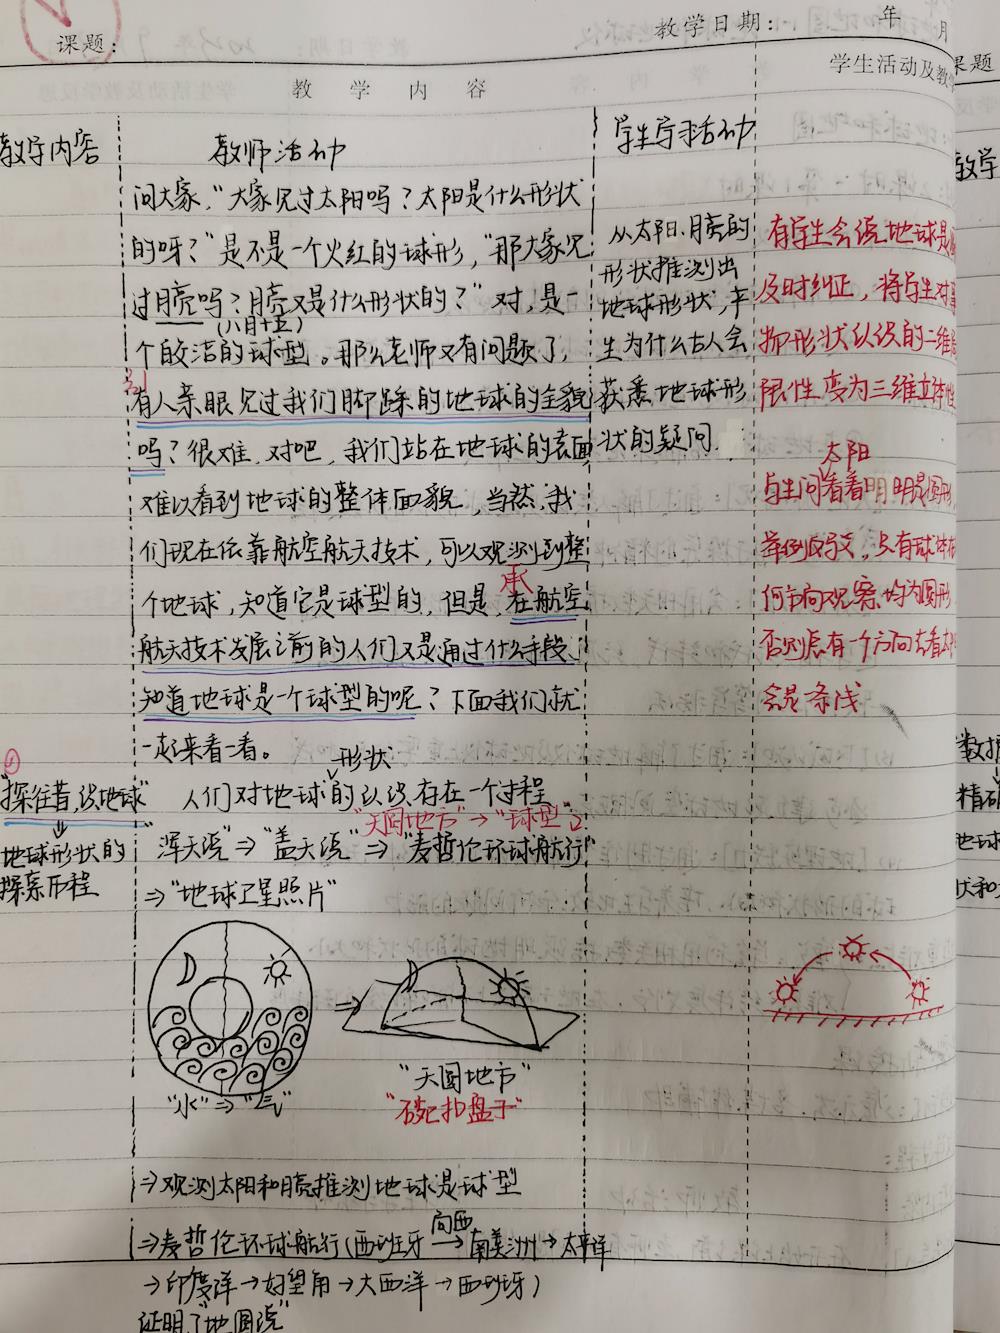 课题:
教学日期: 年 月
教 学 内 容
学生活动及教
课题
教学内容
教师活动
学生学习活动
教学
问大家,“大家见过太阳吗?太阳是什么形状
的呀?”是不是一个火红的球形,“那大家见
过月亮吗?月亮又是什么形状的?”对,是
(八月十五)
个皎洁的球型。那么老师又有问题了,
有人亲眼见过我们脚踩的地球的全貌
吗?很难,对吧,我们站在地球的表面
难以看到地球的整体面貌,当然,我
们现在依靠航空航天技术,可以观测到整
承
个地球,知道它是球型的,但是,在航空
航天技术发展之前的人们又是通过什么手段,
知道地球是一个球型的呢?下面我们就
一起来看一看。
从太阳、月亮的
形状推测出
地球形状,产
生为什么古人会
获悉地球形
状的疑问.
有学生会说地球是
及时纠正,将学生对
物形状认识的二维
限性变为三维立体性
太阳
学生问看着明明是圆形,
举例硬币,只有球体
何方向观察均为圆形
否则总有一个方向去看
会是条线
“探往昔,识地球”
⇓
地球形状的
探索历程
形状
人们对地球的认识存在一个过程
“天圆地方”→“球型”
“浑天说”⇒“盖天说”⇒“麦哲伦环球航行”
⇒“地球卫星照片”
“水”⇒“气”
“天圆地方”
“碗扣盘子”
→观测太阳和月亮推测地球是球型
⇒麦哲伦环球航行(西班牙 向西→ 南美洲→太平洋
→印度洋→好望角→大西洋→西班牙)
证明了“地圆说”
精确
地球
状和